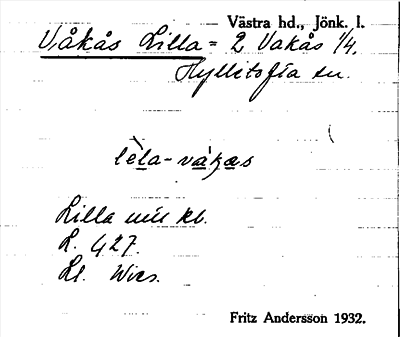 Västra hd., Jönk. l.
Våkås Lilla = 2 Vakås 1/4.
Hyllitofta sn.
lela-vakas
Lilla
L. 427.
Ll.
Fritz Andersson 1932.